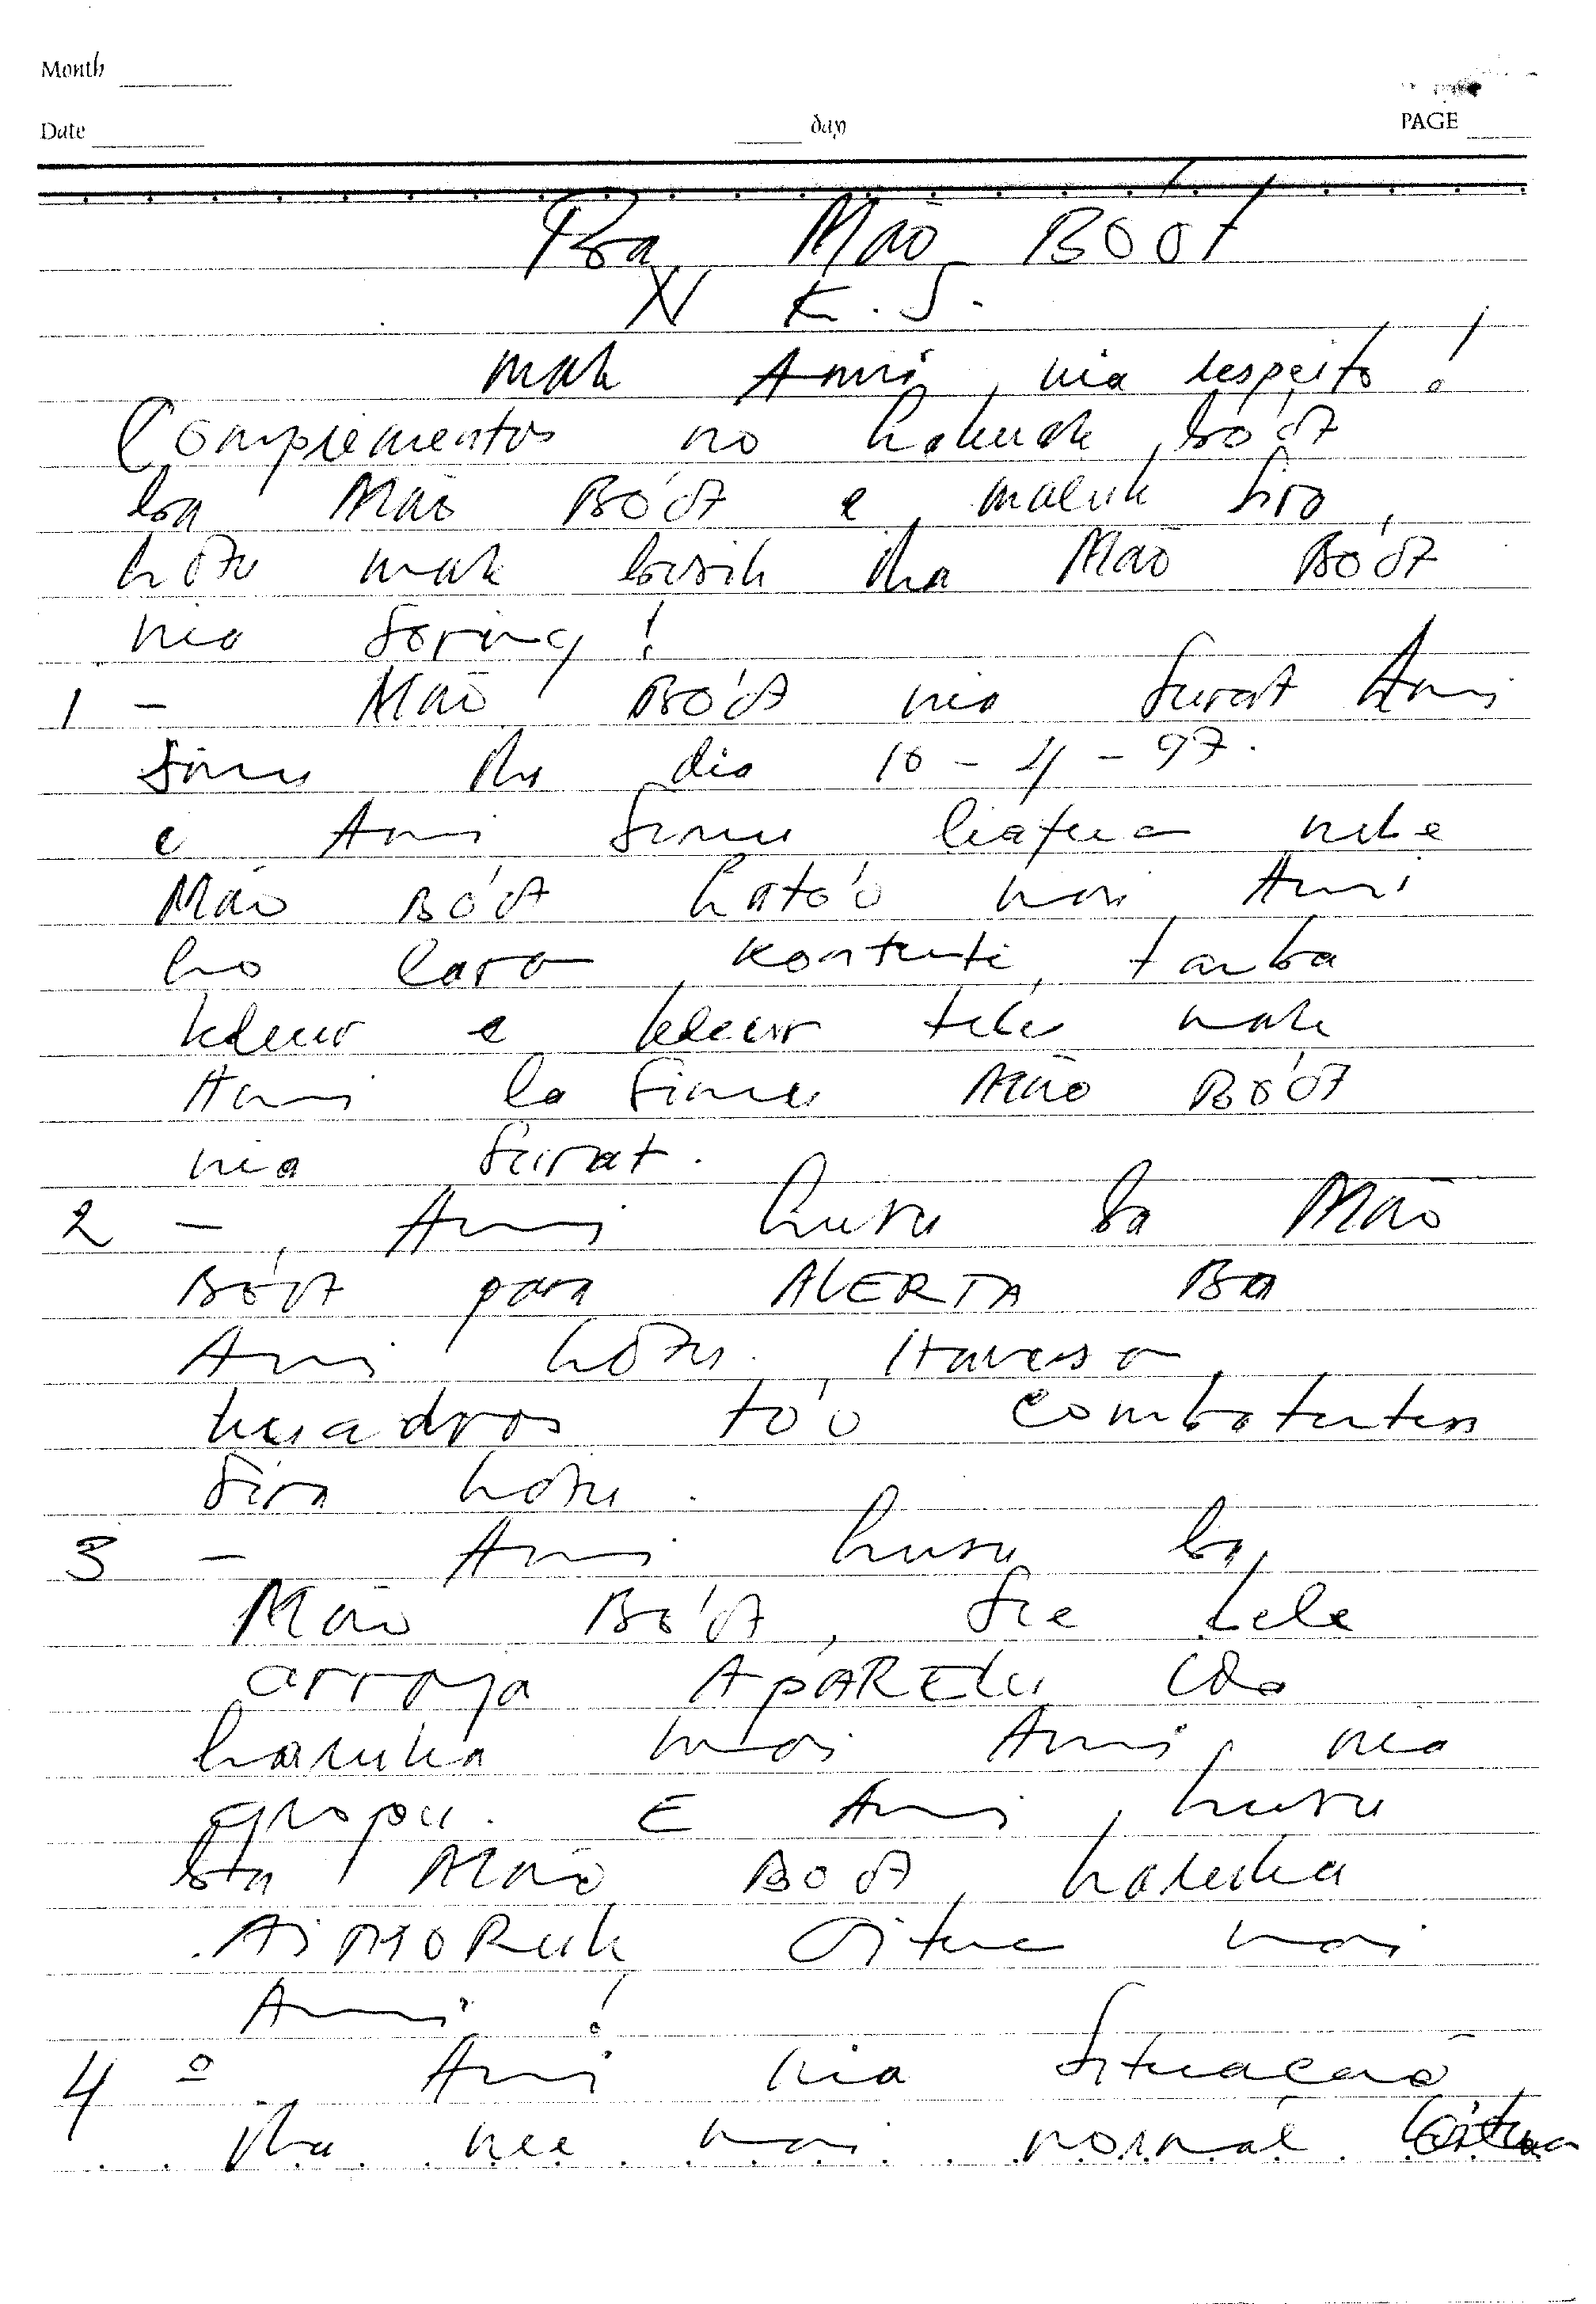 Month
Date day PAGE
Ba Mão Bóót
N K.S.
mak Ami nia respeito!
Complementos no hakuak bóót
ba Mão Bóót e maluk sira,
hotu mak besik iha Mão Bóót
nia sorin!
1 - Mão Bóót nia surat Ami
simu iha dia 10-4-97.
e Ami simu liafuan nebe
Mão Bóót ható'o mai Ami
ho laran kontenti, tanba
kleur e kleur tebes mak
Ami la simu Mão Bóót
nia surat.
2 - Ami husu ba Mão
Bóót para ALERTA Ba
Ami hotu.
kuadros tó'o combatentes
sira hotu.
3 - Ami husu ba
Mão Bóót, se bele
arranja APARELU ida
haruka mai Ami nia
grupu. E Ami husu
ba Mão Boot, haruka
AiMORuk oituan mai
Ami!
4º Ami nia Situacaõ
iha nee mai normal oituan